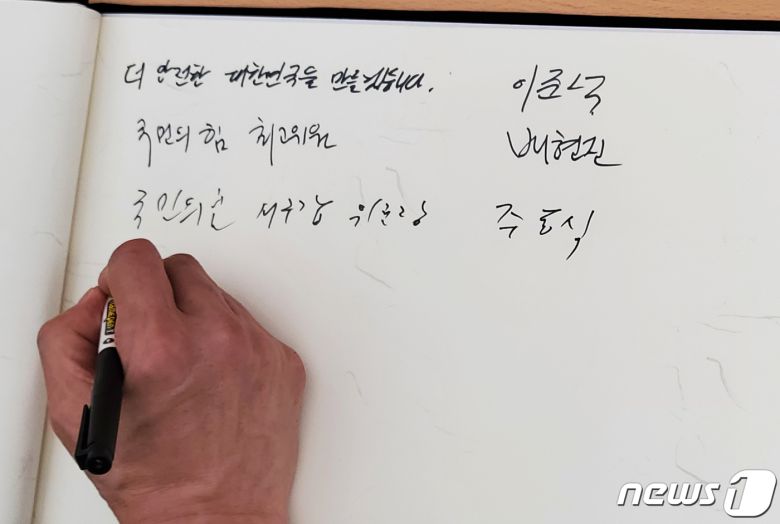 더 안전한 대한민국을 만들겠습니다. 이준석
국민의힘 최고위원 배현진
국민의힘 서구갑 위원장 주호식
news1